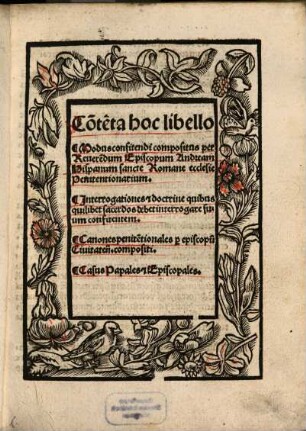 Cōtēta hoc libello
¶Modus confitendi compositus per
Reuerēdum Episcopum Andream
Hispanum sancte Romane ecclesie
Penitentionarium.
¶Interrogationes ⁊ doctrine quibus
quilibet sacerdos debet interrogare su
um confitentem.
¶Canones penitētionales ꝑ episcopū
Ciuitateñ. compositi.
¶Casus Papales ⁊ Episcopales.